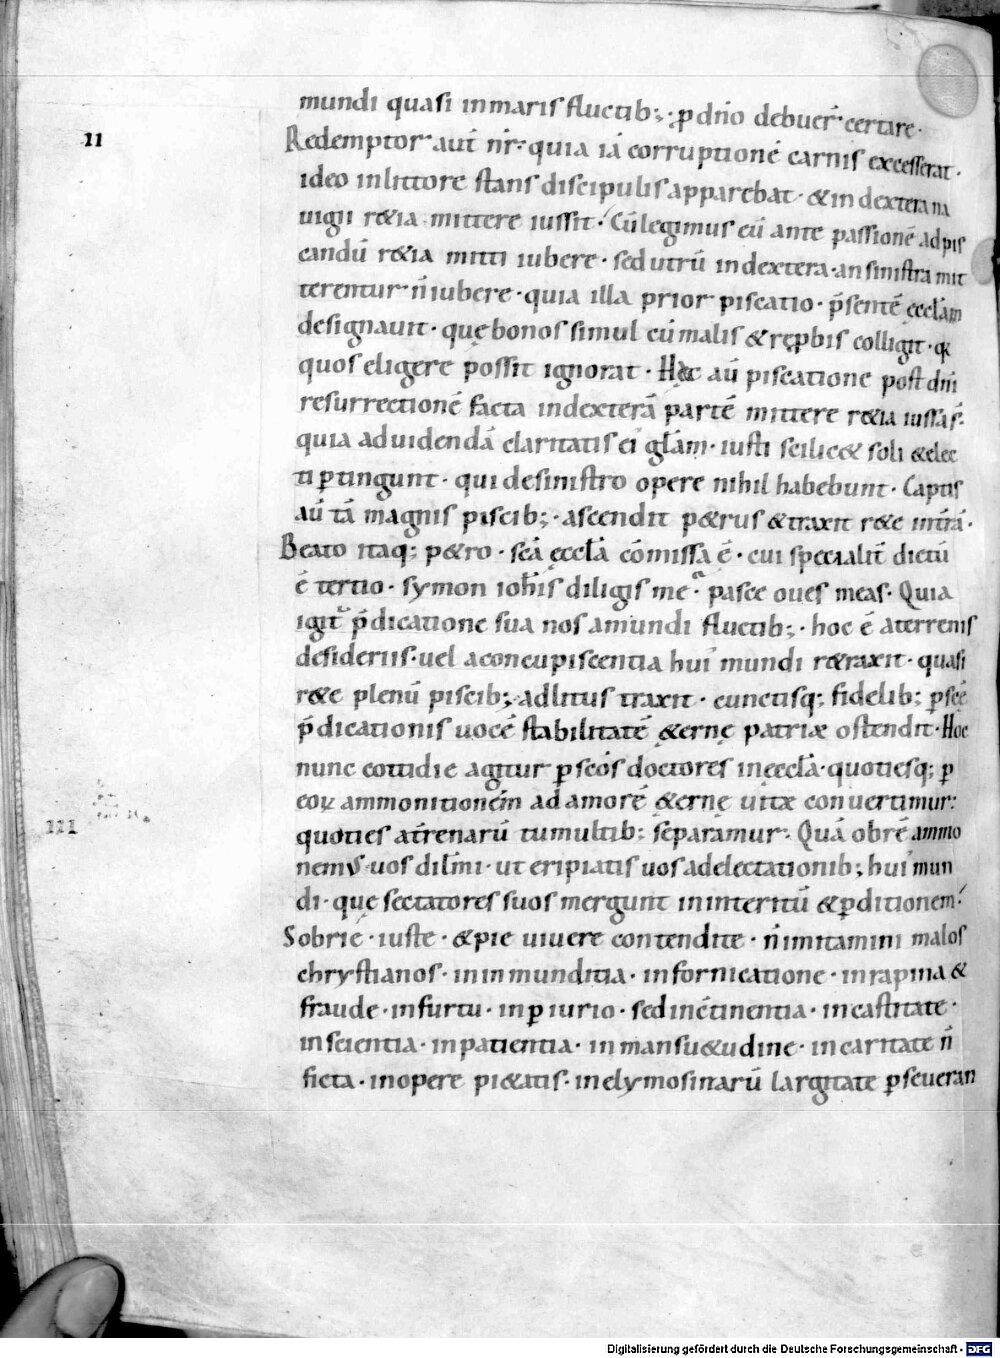 mundi quasi inmaris fluctib;· ꝑ dn̄o debuer̄ certare·
II
Redemptor aut̄ nr̄· quia iā corruptionē carnis excesserat·
ideo inlittore stans discipulis apparebat· & in dextera na
uigii r&ia mittere iussit· Cū legimus eū ante passionē adpis
candū r&ia mitti iubere· sed utrū in dextera· an sinistra mit
terentur n̄ iubere· quia illa prior piscatio· p̄sentē ęccłam
designauit· quę bonos simul cū malis & ręꝓbis colligit· &
quos eligere possit ignorat· Hęc aū piscatione post dn̄i
resurrectionē facta indexterā partē mittere r&ia iussa s̄·
quia ad uidendā claritatis ei' głam· iusti scilic& soli &elec
ti ꝑtingunt· qui desinistro opere nihil habebunt· Captis
aū tā magnis piscib;· ascendit p&rus & traxit r&e intrā·
Beato itaq; p&ro· scā ęccłā cōmissa ē· cui specialit̄ dictū
ē tertio· symon iohis diligis me· pasce oues meas· Quia
igit' p̄dicatione sua nos amundi fluctib;· hoc ē aterrenis
desideriis· uel aconcupiscentia hui' mundi r&raxit· quasi
r&e plenū piscib;· adlitus traxit· cunctisq; fidelib; ꝑ scē
p̄dicationis uocē stabilitatē &ernę patriæ ostendit· Hoc
nunc cottidie agitur ꝑ scōs doctores in ęccłā· quotiesq; ꝑ
eoꝝ ammonitionem ad amorē &ernę uitæ conuertimur:
III
quoties at̄renarū tumultib; separamur· Quā obrē ammo
nemus uos diłmi· ut eripiatis uos adelectationib; hui' mun
di· quę sectatores suos mergunt in interitū & ꝑditionem·
Sobrie· iuste· & pie uiuere contendite· n̄ imitamini malos
chrystianos· in inmunditia· in fornicatione· in rapina &
fraude· in furtu· in ꝑiurio· sed in c̄tinentia· in castitate·
in scientia· in patientia· in mansu&udine· in caritate n̄
ficta· in opere pi&atis· in elymosinarū largitate ꝑseueran
Digitalisierung gefördert durch die Deutsche Forschungsgemeinschaft - DFG